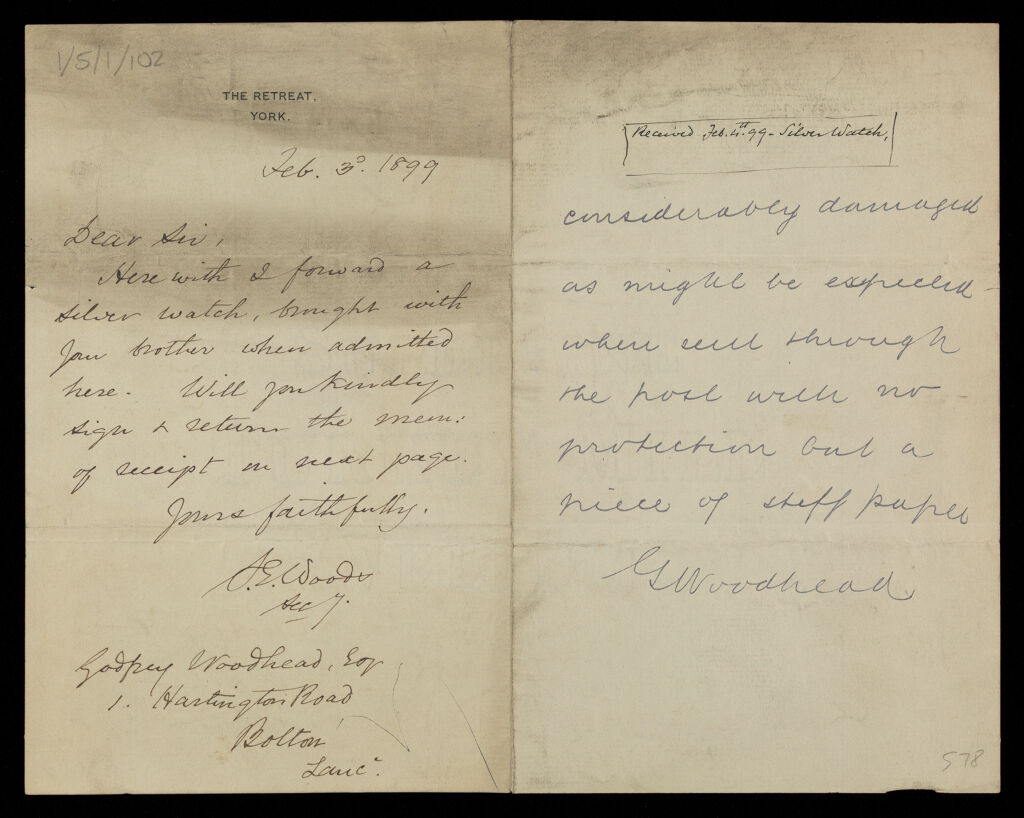 1/5/1/102
THE RETREAT,
YORK.
Feb. 3d. 1899
Dear Sir,
Herewith I forward a
silver watch, brought with
your brother when admitted
here. Will you kindly
sign & return the mem:
of receipt on next page.
Yours faithfully.
Woods
Secy.
Godfrey Woodhead, Esqr
1. Hartington Road
Bolton
Lancr.
Received Feb. 4th. 99 - Silver Watch,
considerably damaged
as might be expected
when sent through
the post with no
protection but a
piece of stiff paper
G Woodhead.
578